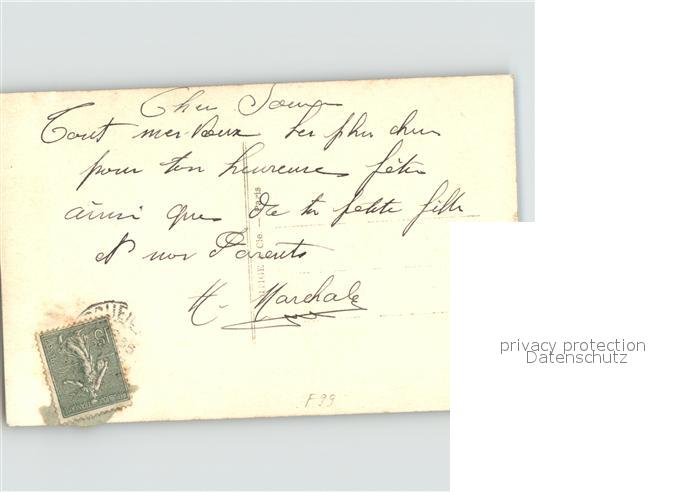 Cher Soeur
Tout mes Voeux les plus cher
pour ten heureuse fête
ainsi que de ta petite fille
et nos Parents
H. Marchale
& Cie. - Paris
15
F 99
privacy protection
Datenschutz